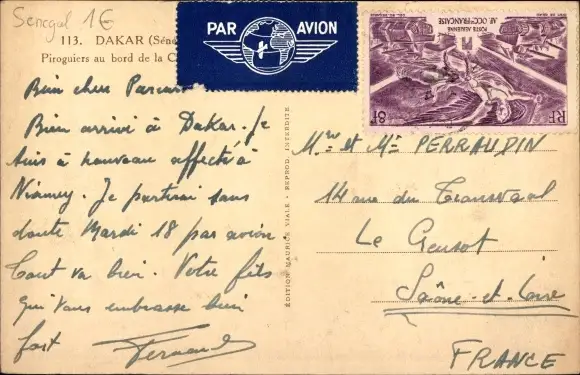 Senegal 1€
113. DAKAR (Séné
Pirogiers au bord de la C
PAR AVION
Bien chers Parents
Bien arrivé à Dakar. Je
suis à nouveau affecté à
Niamey. Je partirai sans
doute Mardi 18 par avion.
Tout va bien. Votre fils
qui vous embrasse bien
fort Fernand
ÉDITION MAURICE VIALE - REPROD. INTERDITE
RF
8F
POSTE AERIENNE
AF. OCC^LE FRANÇAISE
Mr et Me PERRAUDIN
14 rue du Transvaal
Le Creusot
Saône-et-Loire
FRANCE